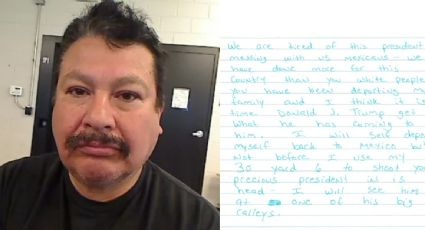 We are tired of this president
messing with us mexicans - we
have done more for this
Country than you white people
you have been deporting my
family and I think it is
time Donald J. Trump get
What he has coming to
him. I will self deport
myself back to Mexico but
Not before I use my
30 yard 6 to shoot your
precious president in is
head - I will see him
at one of his big
ralleys.